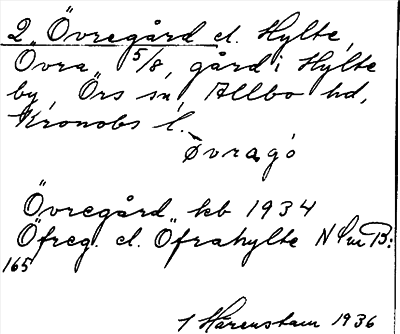 2 Övregård el. Hylte,
Övra, 5/8, gård i Hylte
by, Örs sn, Allbo hd,
Kronobs l.
Øvragó
Övregård kb 1934
Öfreg. el. Öfrahylte NSmB:
165
1 Härenstam 1936